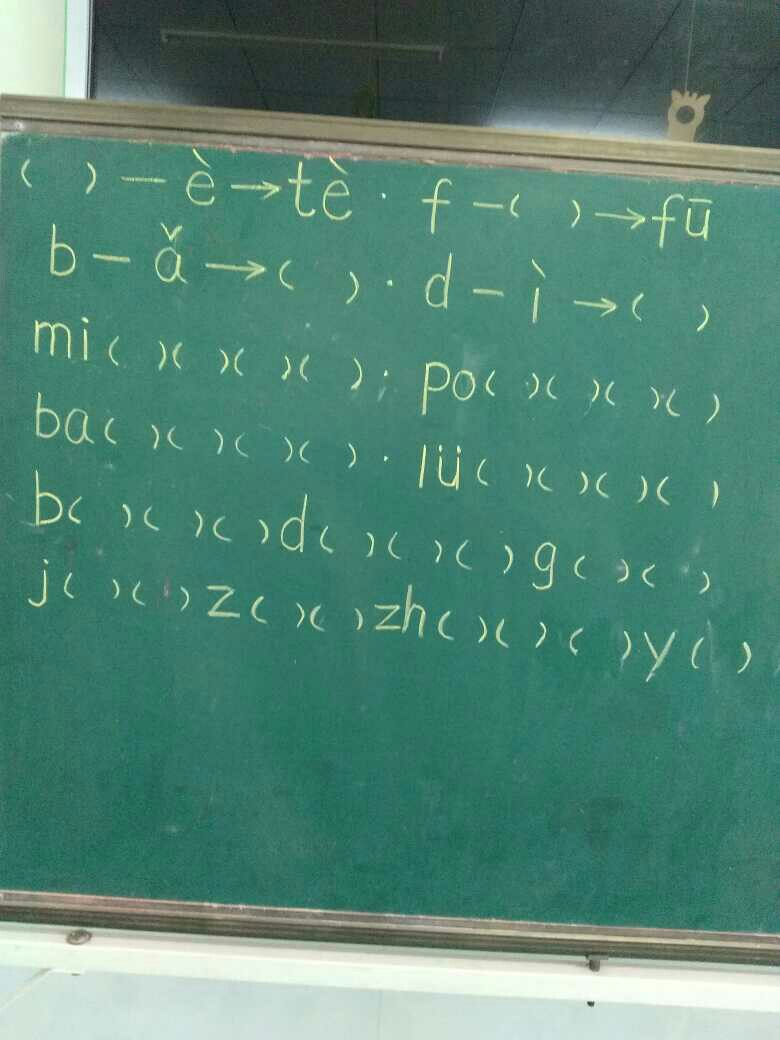 ( ) — è → tè · f — ( ) → fū
b — ǎ → ( ) · d — ì → ( )
mi ( ) ( ) ( ) ( ) · po ( ) ( ) ( ) ( )
ba ( ) ( ) ( ) ( ) · lü ( ) ( ) ( ) ( )
b ( ) ( ) ( ) d ( ) ( ) ( ) g ( ) ( )
j ( ) ( ) z ( ) ( ) zh ( ) ( ) ( ) y ( )